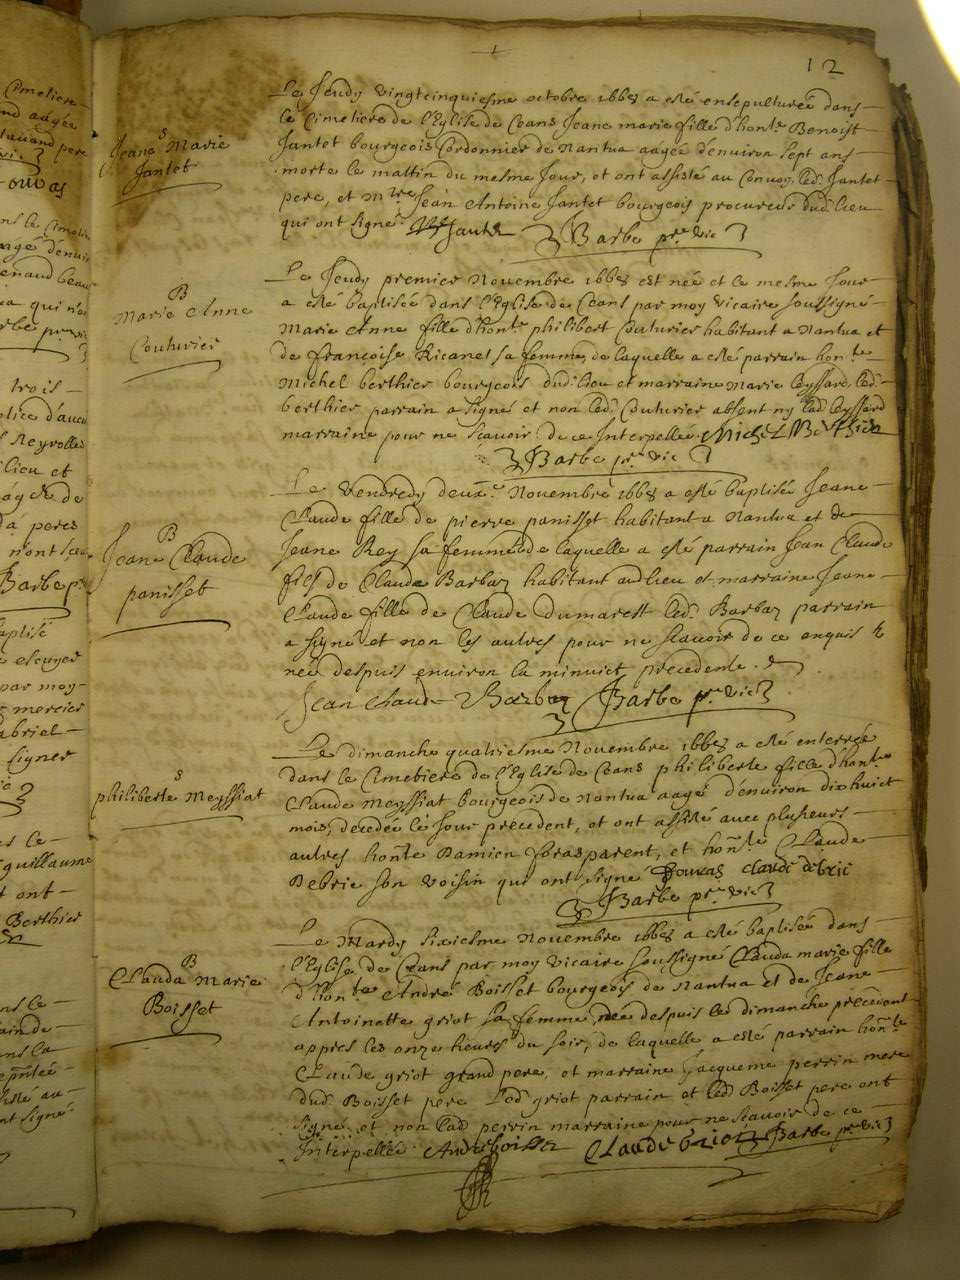 12
S
Jeane Marie
Jantet
Le Jeudy vingtcinquiesme octobre 1668 a esté ensepulturée dans
le Cimetiere de l'Eglise de Ceans Jeane marie fille d'hon.te Benoist
Jantet bourgeois Cordonnier de Nantua aagée d'environ sept ans
morte le mattin du mesme jour, et ont assisté au Convoy led. Jantet
pere, et M.re Jean Antoine Jantet bourgeois procureur dud. lieu
qui ont signé Jantet Barbe p.re vic
B
Marie Anne
Couturier
Le Jeudy premier Novembre 1668 est née et le mesme Jour
a esté baptisée dans l'Eglise de Ceans par moy vicaire soussigné
Marie Anne fille d'hon.te philibert Couturier habitant a Nantua et
de françoise Ricanet sa femme, de laquelle a esté parrain hon.te
Michel berthier bourgeois dud. lieu et marraine Marie leyssard led.
berthier parrain a signé et non led. Couturier absent ny lad. leyssard
marraine pour ne scavoir de ce Interpellée Michel Berthier
Barbe p.re vic
B
Jeane Claude
panisset
Le vendredy deux.e Novembre 1668 a esté baptisée Jeane
Claude fille de pierre panisset habitant a Nantua et de
Jeane Rey sa femme de laquelle a esté parrain Jean Claude
fils de Claude Barbaz habitant aud lieu et marraine Jeane
Claude fille de Claude Dumarest led. Barbaz parrain
a signé et non les autres pour ne scavoir de ce enquis &
née despuis environ la minuict precedente.
Jean Claude Barbaz Barbe p.re vic
S
philiberte Meyssiat
Le dimanche quatriesme Novembre 1668 a esté enterrée
dans le Cimetiere de l'Eglise de Ceans philiberte fille d'hon.te
Claude Meyssiat bourgeois de Nantua aagé d'environ dixhuict
mois, decedée le Jour precedent, et ont assisté avec plusieurs
autres hon.te Damien foras parent, et hon.te Claude
Debrie son voisin qui ont signé fouras claude debrie
Barbe p.re vic
B
Clauda Marie
Boisset
Le Mardy sixiesme Novembre 1668 a esté baptisée dans
l'Eglise de Ceans par moy vicaire soussigné Clauda marie fille
d'hon.te André Boisset bourgeois de Nantua et de Jeane
Antoinette griot sa femme, née despuis led dimanche précédent
appres les onze heures du soir, de laquelle a esté parrain hon.te
Claude griot grand pere, et marraine Jacqueme perrin mere
dud. Boisset pere Led griot parrain et led Boisset pere ont
signé et non lad perrin marraine pour ne scavoir de ce
Interpellée Andre boisset Claude Griot Barbe p.re vic